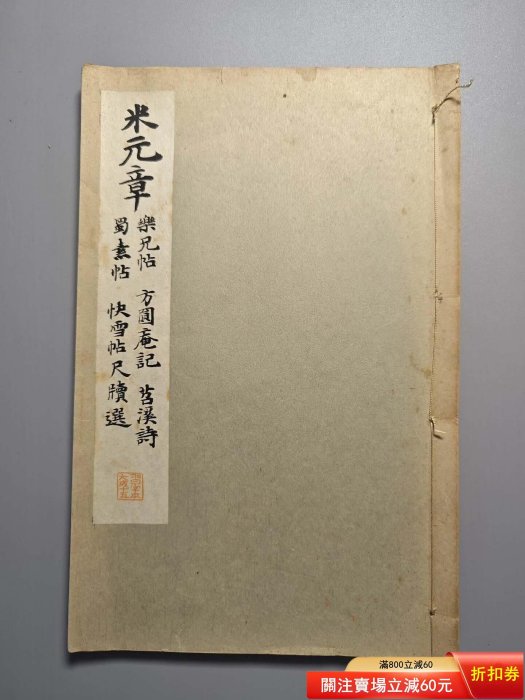 米元章
樂兄帖 方圓庵記 苕溪詩
蜀素帖 快雪帖尺牘選
滿800立減60
關注賣場立減60元
折扣券